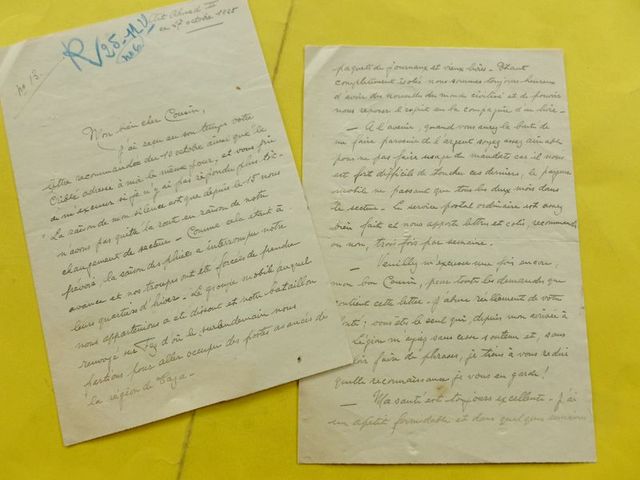 no 13.
R/25-11
no 6
27 octobre 1925
Mon bien cher Cousin,
J'ai reçu en son temps votre
lettre recommandée du 10 octobre ainsi que le
adressé à ma le même jour, et vous prie
de m'excuser si je n'y ai pas répondu plus tôt.
La raison de mon silence est que depuis le 15 nous
n'avons pas quitté la route en raison de notre
changement de secteur. Comme cela était à
prévoir, la saison des pluies a interrompu notre
avance et nos troupes ont été forcées de prendre
leurs quartiers d'hiver. Le groupe mobile auquel
nous appartenions a été dissout et notre bataillon
renvoyé sur Fez d'où le surlendemain nous
partions pour aller occuper des postes avancés de
la région de Taza.
paquets de journaux et vieux livres. Etant
complètement isolé nous sommes toujours heureux
d'avoir des nouvelles du monde civilisé et de pouvoir
nous reposer l'esprit en la compagnie d'un livre.
— A l'avenir, quand vous aurez la bonté de
me faire parvenir de l'argent soyez assez aimable
pour ne pas faire usage du mandat car il nous
est fort difficile de toucher ces derniers, le payeur
mobile ne passant que tous les deux mois dans
le secteur. Le service postal ordinaire est assez
bien fait et nous apporte lettres et colis, recommandés
ou non, trois fois par semaine.
— Veuillez m'excuser une fois encore,
mon bon Cousin, pour toutes les demandes que
contient cette lettre. J'abuse réellement de votre
bonté ; vous êtes le seul qui, depuis mon arrivée à
Légion m'ayez sans cesse soutenu et, sans
faire de phrases, je tiens à vous redire
quelle reconnaissance je vous en garde !
— Ma santé est toujours excellente. J'ai
un apétit formidable et dans quelques semaines